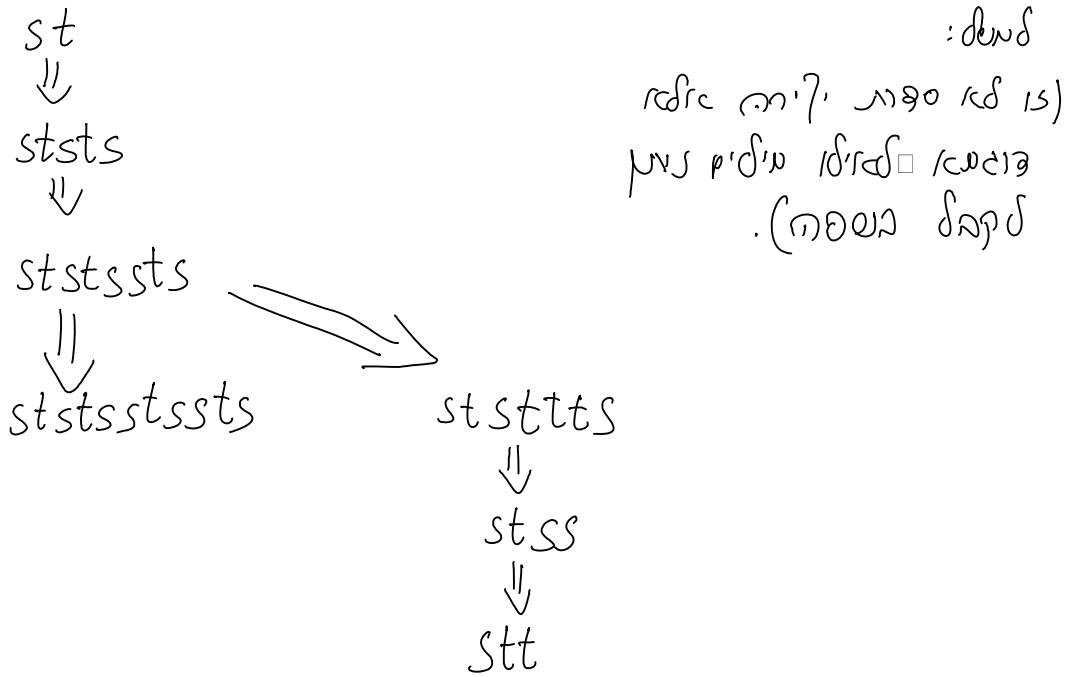 למשל:
(זו לא סדרת יצירה אלא
דוגמא לאילו מילים ניתן
לקבל בשפה).
st
⇓
ststs
⇓
ststssts
⇓
ststsstssts
ststtts
⇓
stss
⇓
stt